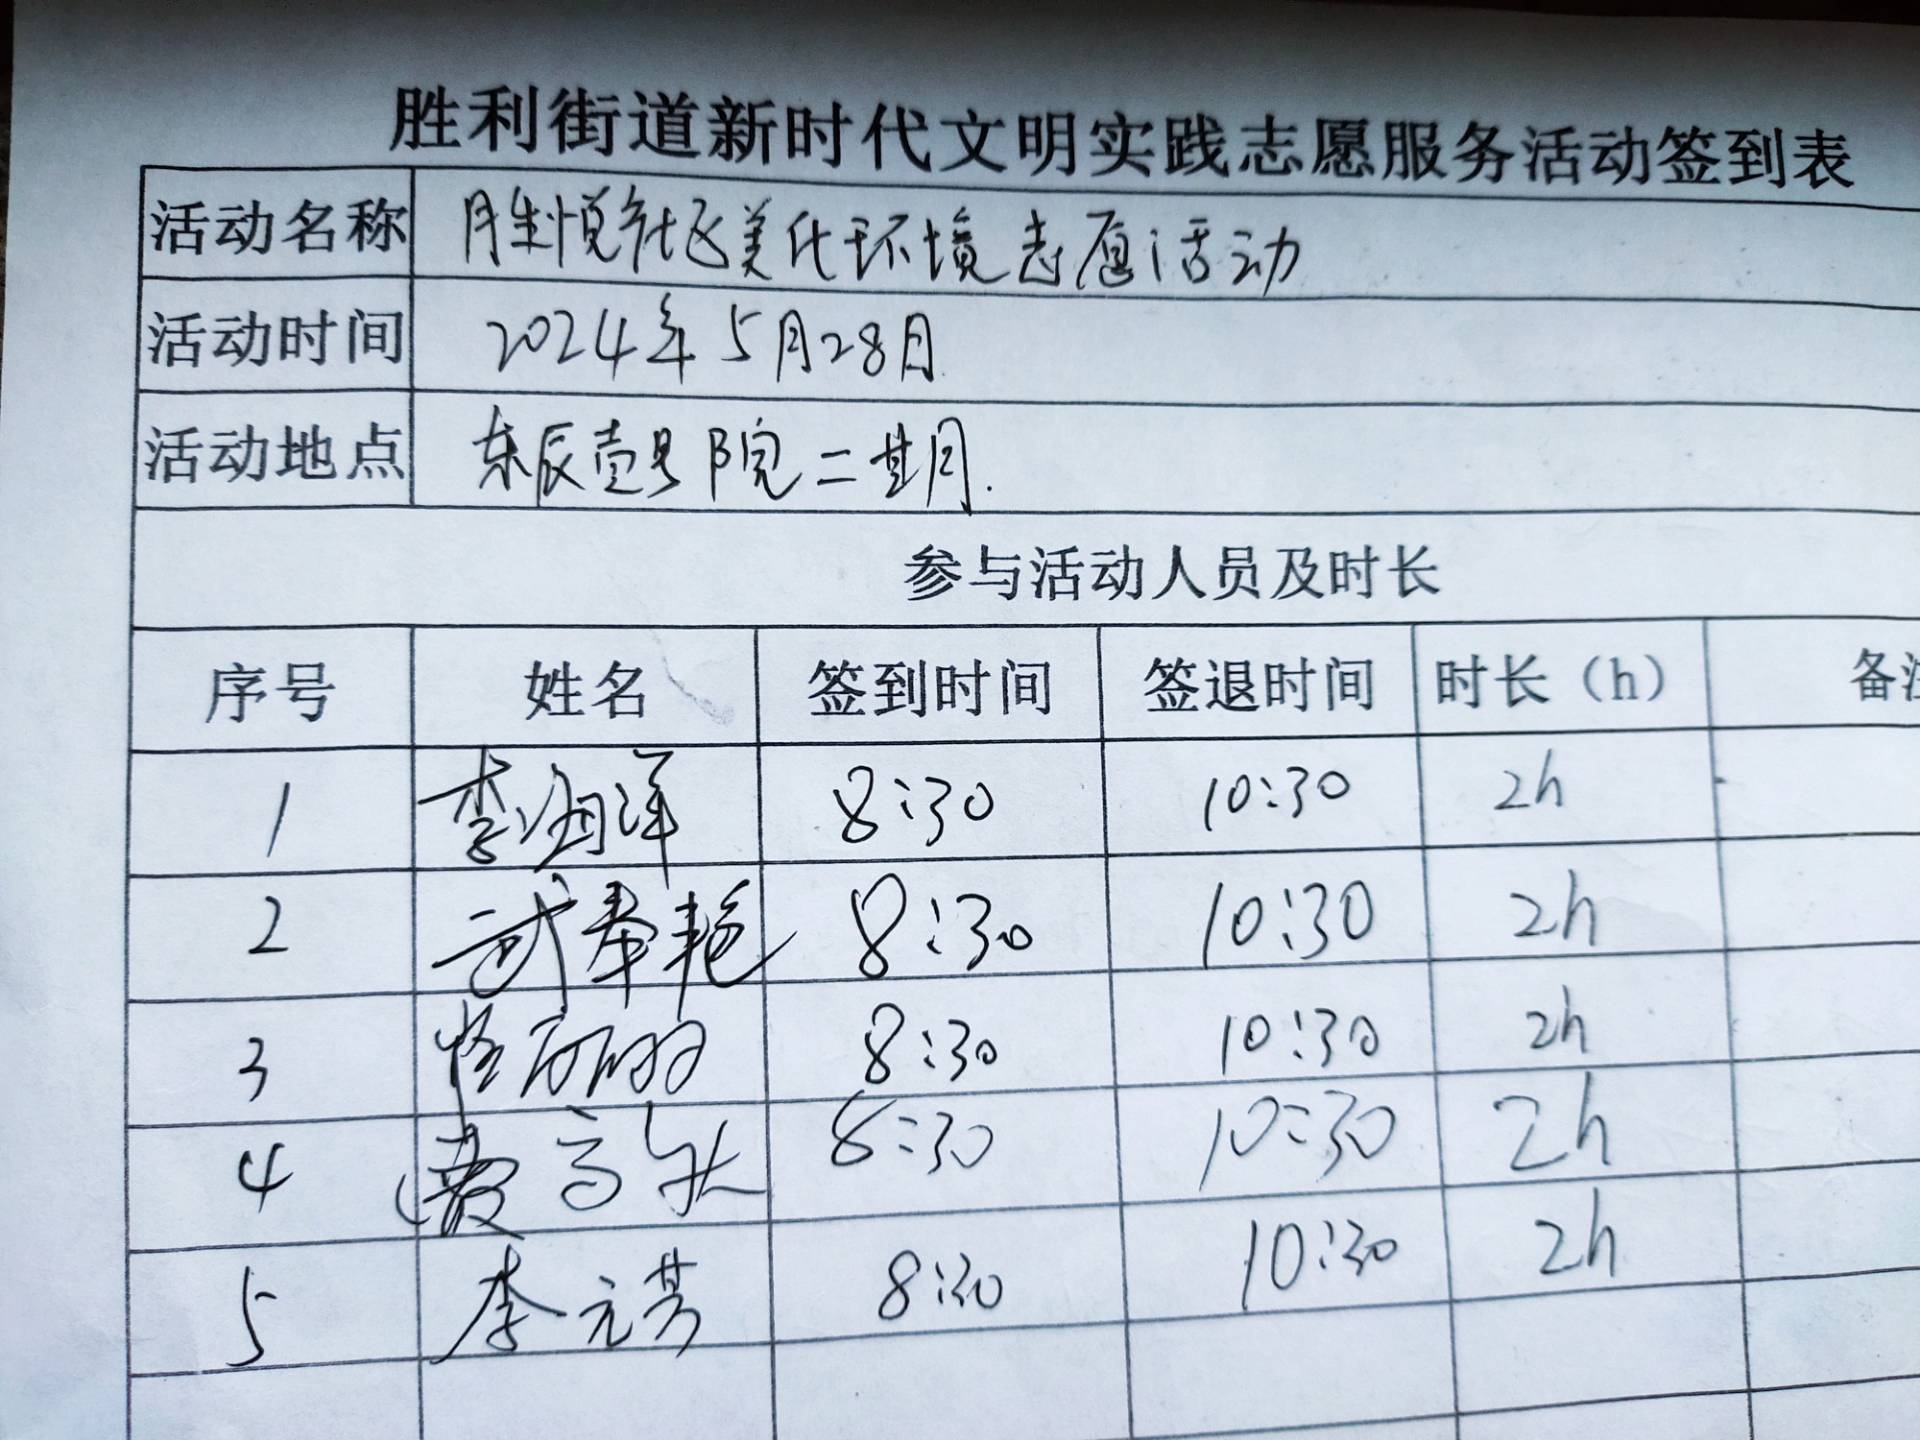 胜利街道新时代文明实践志愿服务活动签到表
活动名称 胜悦社区美化环境志愿活动
活动时间 2024年5月28日
活动地点 东辰壹号院二期.
参与活动人员及时长
序号 姓名 签到时间 签退时间 时长（h） 备
1 李海洋 8:30 10:30 2h
2 武奉艳 8:30 10:30 2h
3 8:30 10:30 2h
4 8:30 10:30 2h
5 李元芳 8:30 10:30 2h